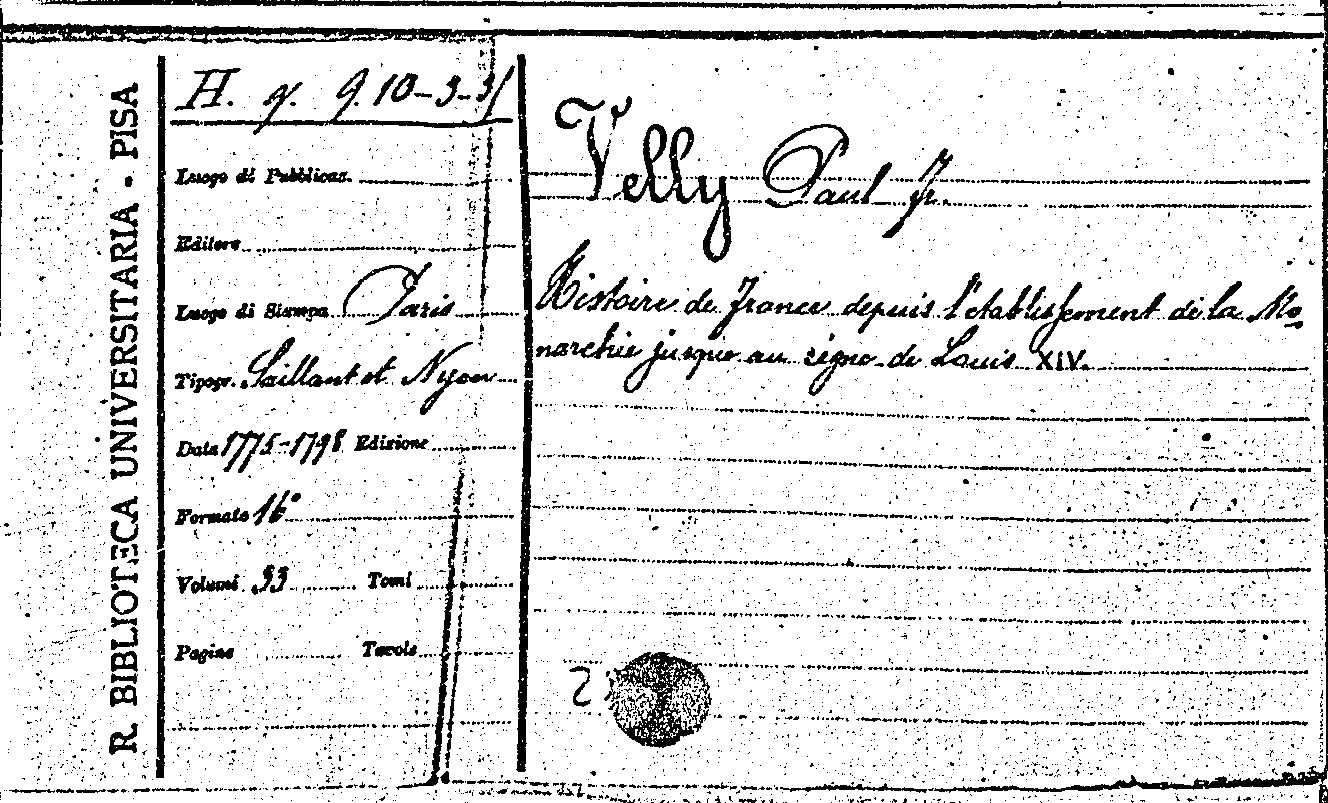 R. BIBLIOTECA UNIVERSITARIA - PISA
H. q. 9. 10-3-31
Luogo di Pubblicaz.
Editore
Luogo di Stampa Paris
Tipogr. Saillant et Nyon
Data 1775-1798 Edizione
Formato 16°
Volumi 33 Tomi
Pagine Tavole
Velly Paul Fr.
Histoire de France depuis l'etablissement de la Mo
narchie jusque au règne de Louis XIV.